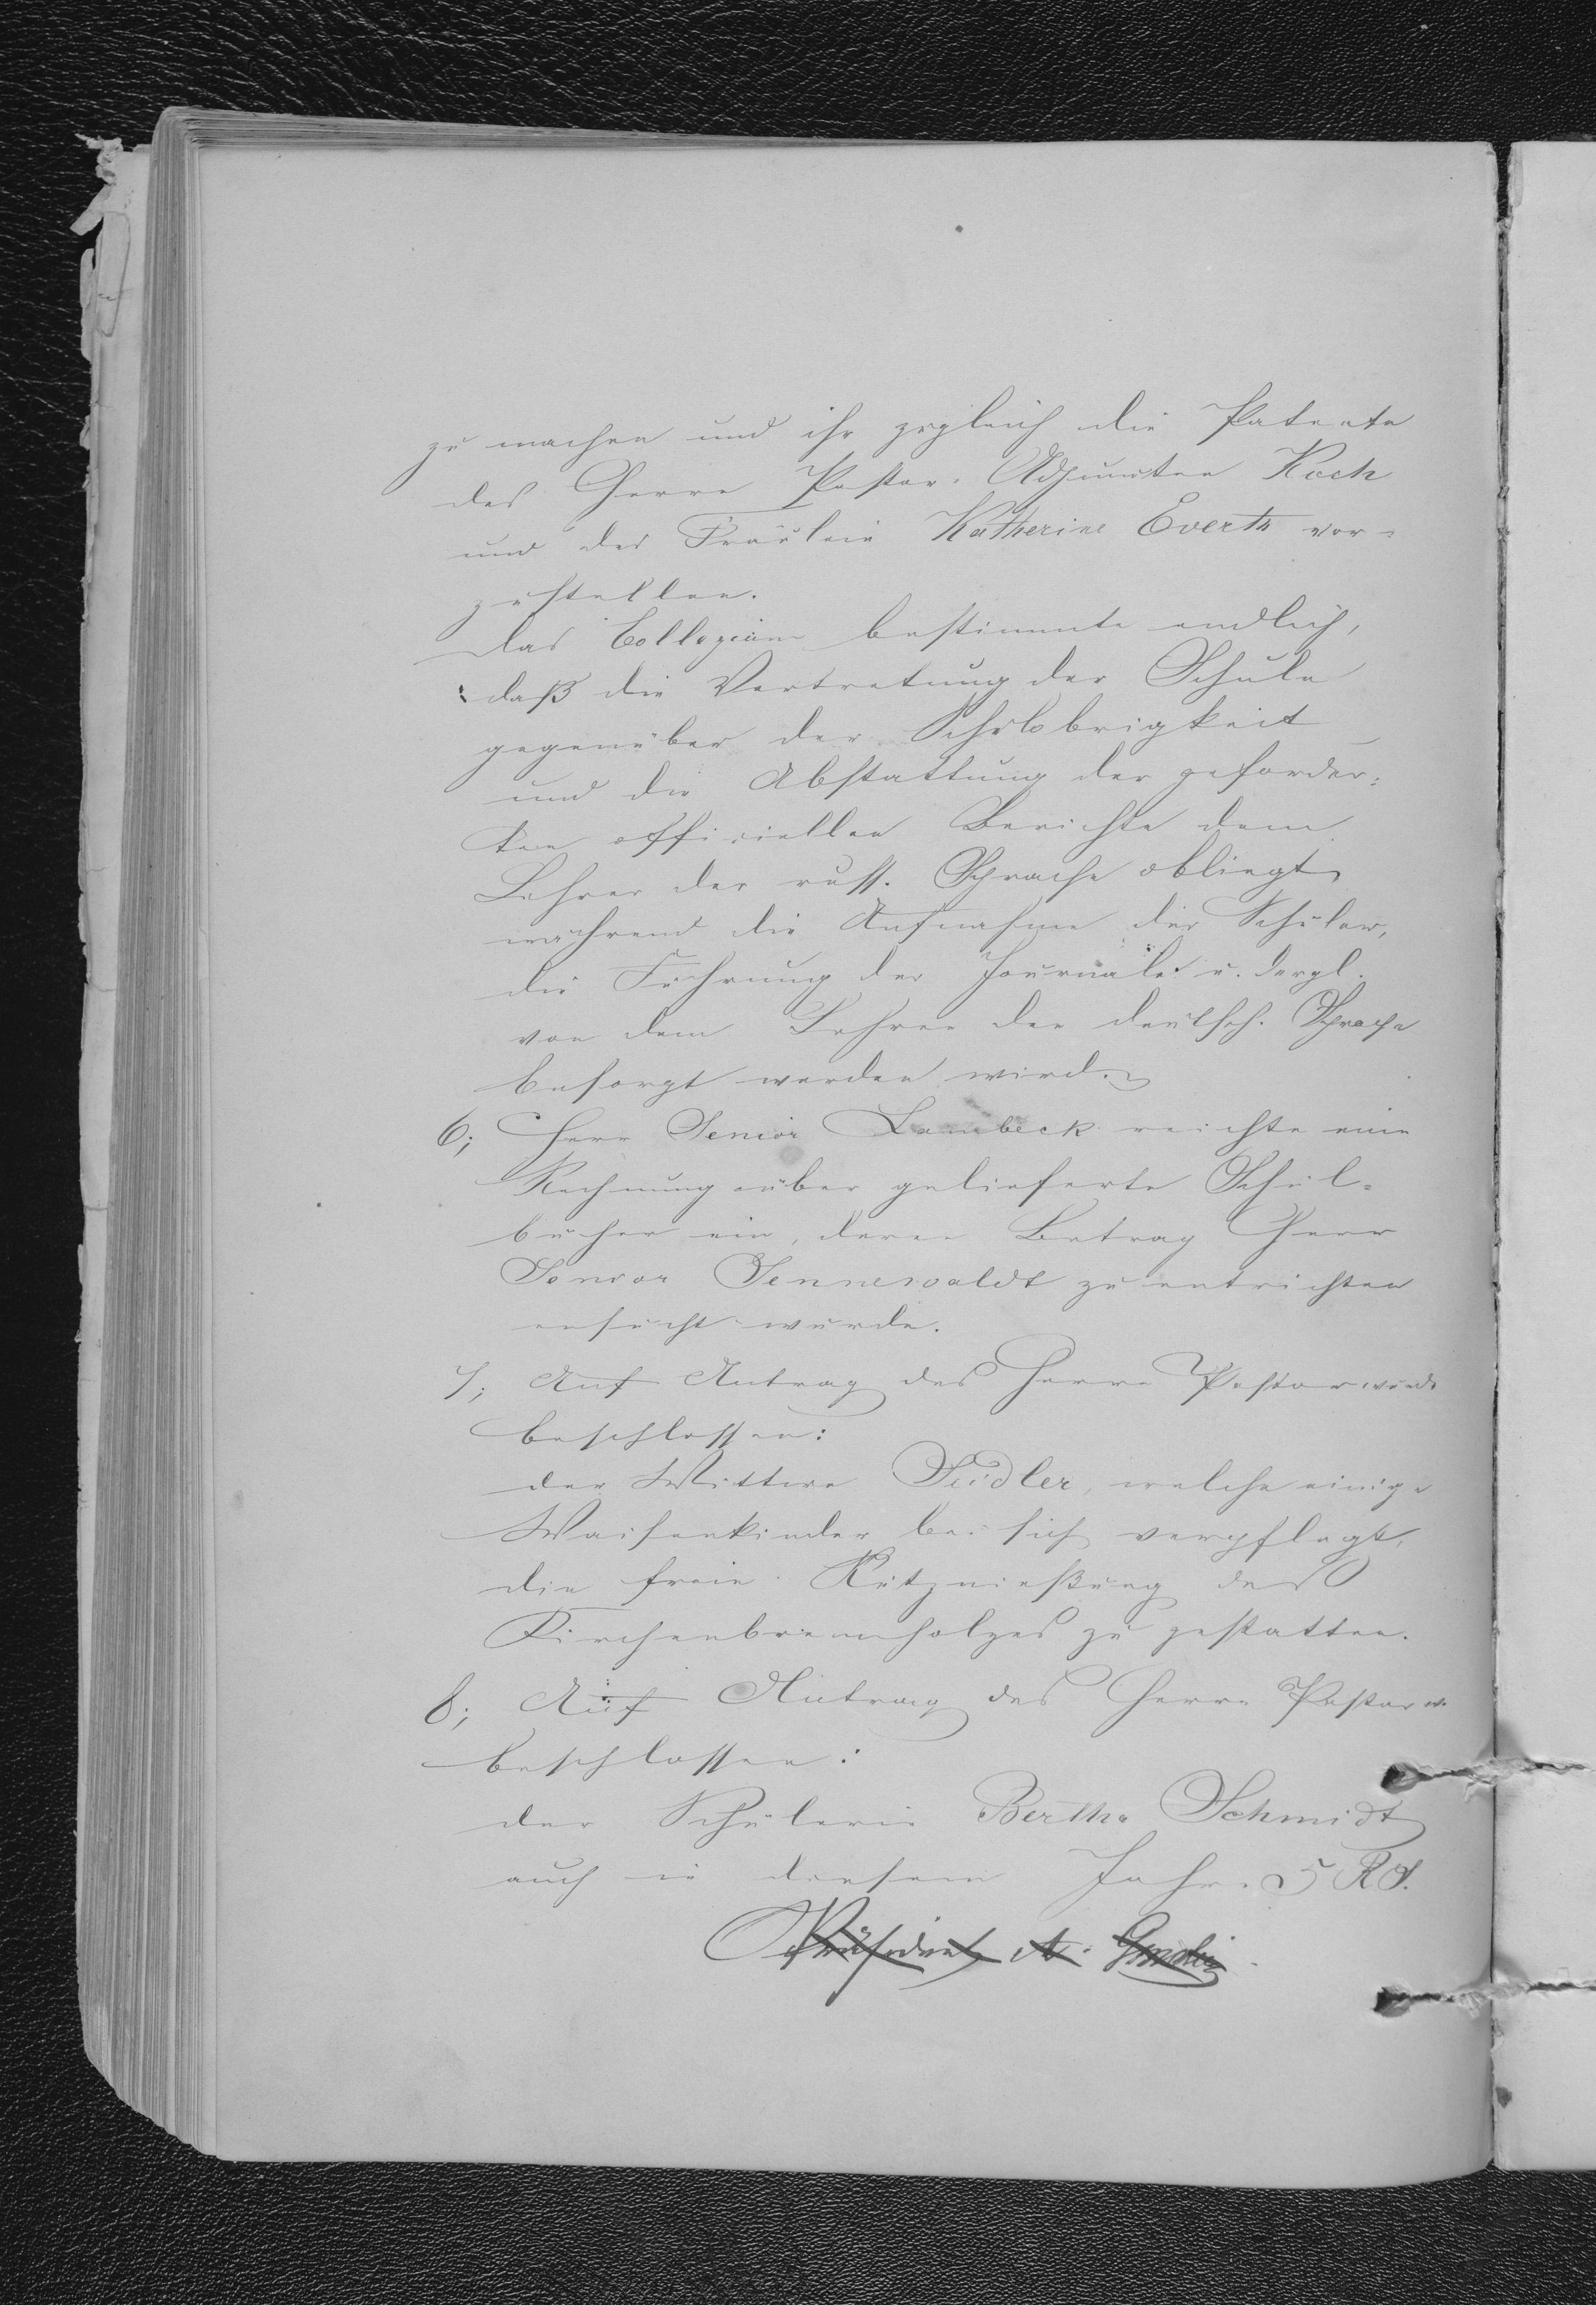 zu machen und ihr zugleich die Patente
des Herrn Pastor-Adjuncten Koch
und des Fräulein Katherine Everth vor-
zustellen.
Das Collegium bestimmte endlich,
daß die Vertretung der Schule
gegenüber der Schulobrigkeit
und die Abstattung der geforder-
ten officiellen Berichte dem
Lehrer der russ. Sprache obliegt,
während die Aufnahme der Schüler,
die Führung der Journale u. dergl.
von dem Lehrer der deutsch. Sprache
besorgt werden wird.
6; Herr Senior Lambeck reichte eine
Rechnung über gelieferte Schul-
bücher ein, deren Betrag Herr
Senior Sennewaldt zu entrichten
ersucht wurde.
7; Auf Antrag des Herrn Pastor wurde
beschlossen:
der Wittwe Seidler, welche einige
Waisenkinder bei sich verpflegt,
die freie Nutznießung des
Kirchenbrennholzes zu gestatten.
8; Auf Antrag des Herrn Pastor w.
beschlossen:
der Schülerin Bertha Schmidt
auch in diesem Jahre 5 R. S.
Präsident A.